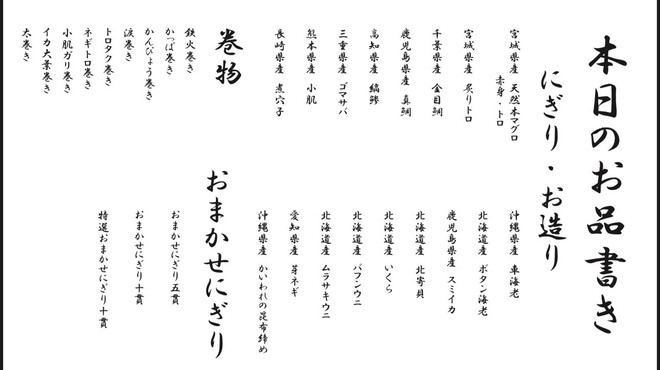 本日のお品書き
にぎり・お造り
宮城県産 天然本マグロ
赤身・トロ
宮城県産 炙りトロ
千葉県産 金目鯛
鹿児島県産 真鯛
高知県産 縞鯵
三重県産 ゴマサバ
熊本県産 小肌
長崎県産 煮穴子
沖縄県産 車海老
北海道産 ボタン海老
鹿児島県産 スミイカ
北海道産 北寄貝
北海道産 いくら
北海道産 バフンウニ
北海道産 ムラサキウニ
愛知県産 芽ネギ
沖縄県産 かいわれの昆布締め
巻物
鉄火巻き
かっぱ巻き
かんぴょう巻き
涙巻き
トロタク巻き
ネギトロ巻き
小肌ガリ巻き
イカ大葉巻き
太巻き
おまかせにぎり
おまかせにぎり五貫
おまかせにぎり十貫
特選おまかせにぎり十貫